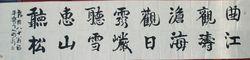 曲江
觀濤
滄海
觀日
靈巖
聽雪
惠山
聽松